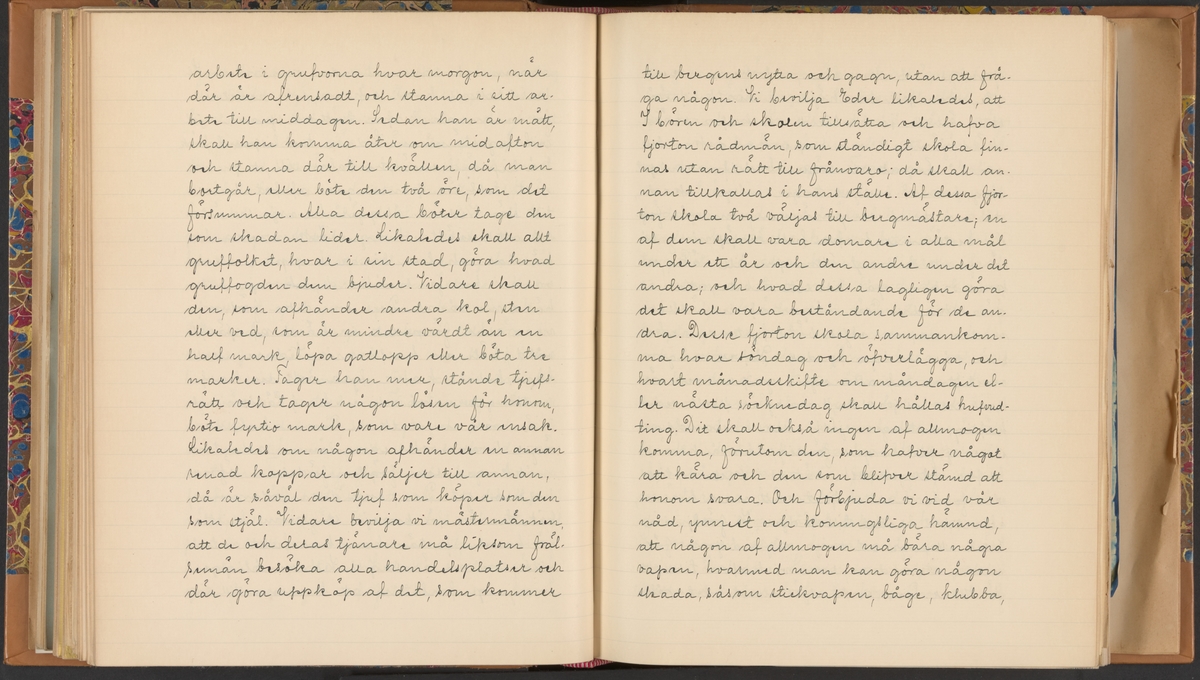 arbete i grufvorna hvar morgon, när
där är afrensadt, och stanna i sitt ar-
bete till middagen. Sedan han är mätt,
skall han komma åter om midafton
och stanna där till kvällen, då man
bortgår, eller böte den två öre, som det
försummar. Alla dessa böter tage den
som skadan lider. Likaledes skall allt
gruffolket, hvar i sin stad, göra hvad
gruffogden dem bjuder. Vidare skall
den, som afhänder andra kol, sten
eller ved, som är mindre värdt än en
half mark, löpa gatlopp eller böta tre
marker. Tager han mer, stånde tjufs-
rätt och tager någon lösen för honom,
böte fyrtio mark, som vare vår ensak.
Likaledes om någon afhänder en annan
renad koppar och säljer till annan,
då är såväl den tjuf som köper som den
som stjäl. Vidare bevilja vi mästermännen,
att de och deras tjänare må liksom fräl-
semän besöka alla handelsplatser och
där göra uppköp af det, som kommer
till bergens nytta och gagn, utan att frå-
ga någon. Vi bevilja Eder likaledes, att
I bören och skolen tillsätta och hafva
fjorton rådmän, som ständigt skola fin-
nas utan rätt till frånvaro; då skall an-
nan tillkallas i hans ställe. Af dessa fjor-
ton skola två väljas till bergmästare; en
af dem skall vara domare i alla mål
under ett år och den andre under det
andra; och hvad dessa lagligen göra
det skall vara beståndande för de an-
dra. Desse fjorton skola sammankom-
ma hvar söndag och öfverlägga, och
hvart månadsskifte om måndagen el-
ler nästa söcknedag skall hållas hufvud-
ting. Dit skall också ingen af allmogen
komma, förutom den, som hafver något
att kära och den som blifver stämd att
honom svara. Och förbjuda vi vid vår
nåd, ynnest och konungsliga hämnd,
att någon af allmogen må bära några
vapen, hvarmed man kan göra någon
skada, såsom stickvapen, båge, klubba,